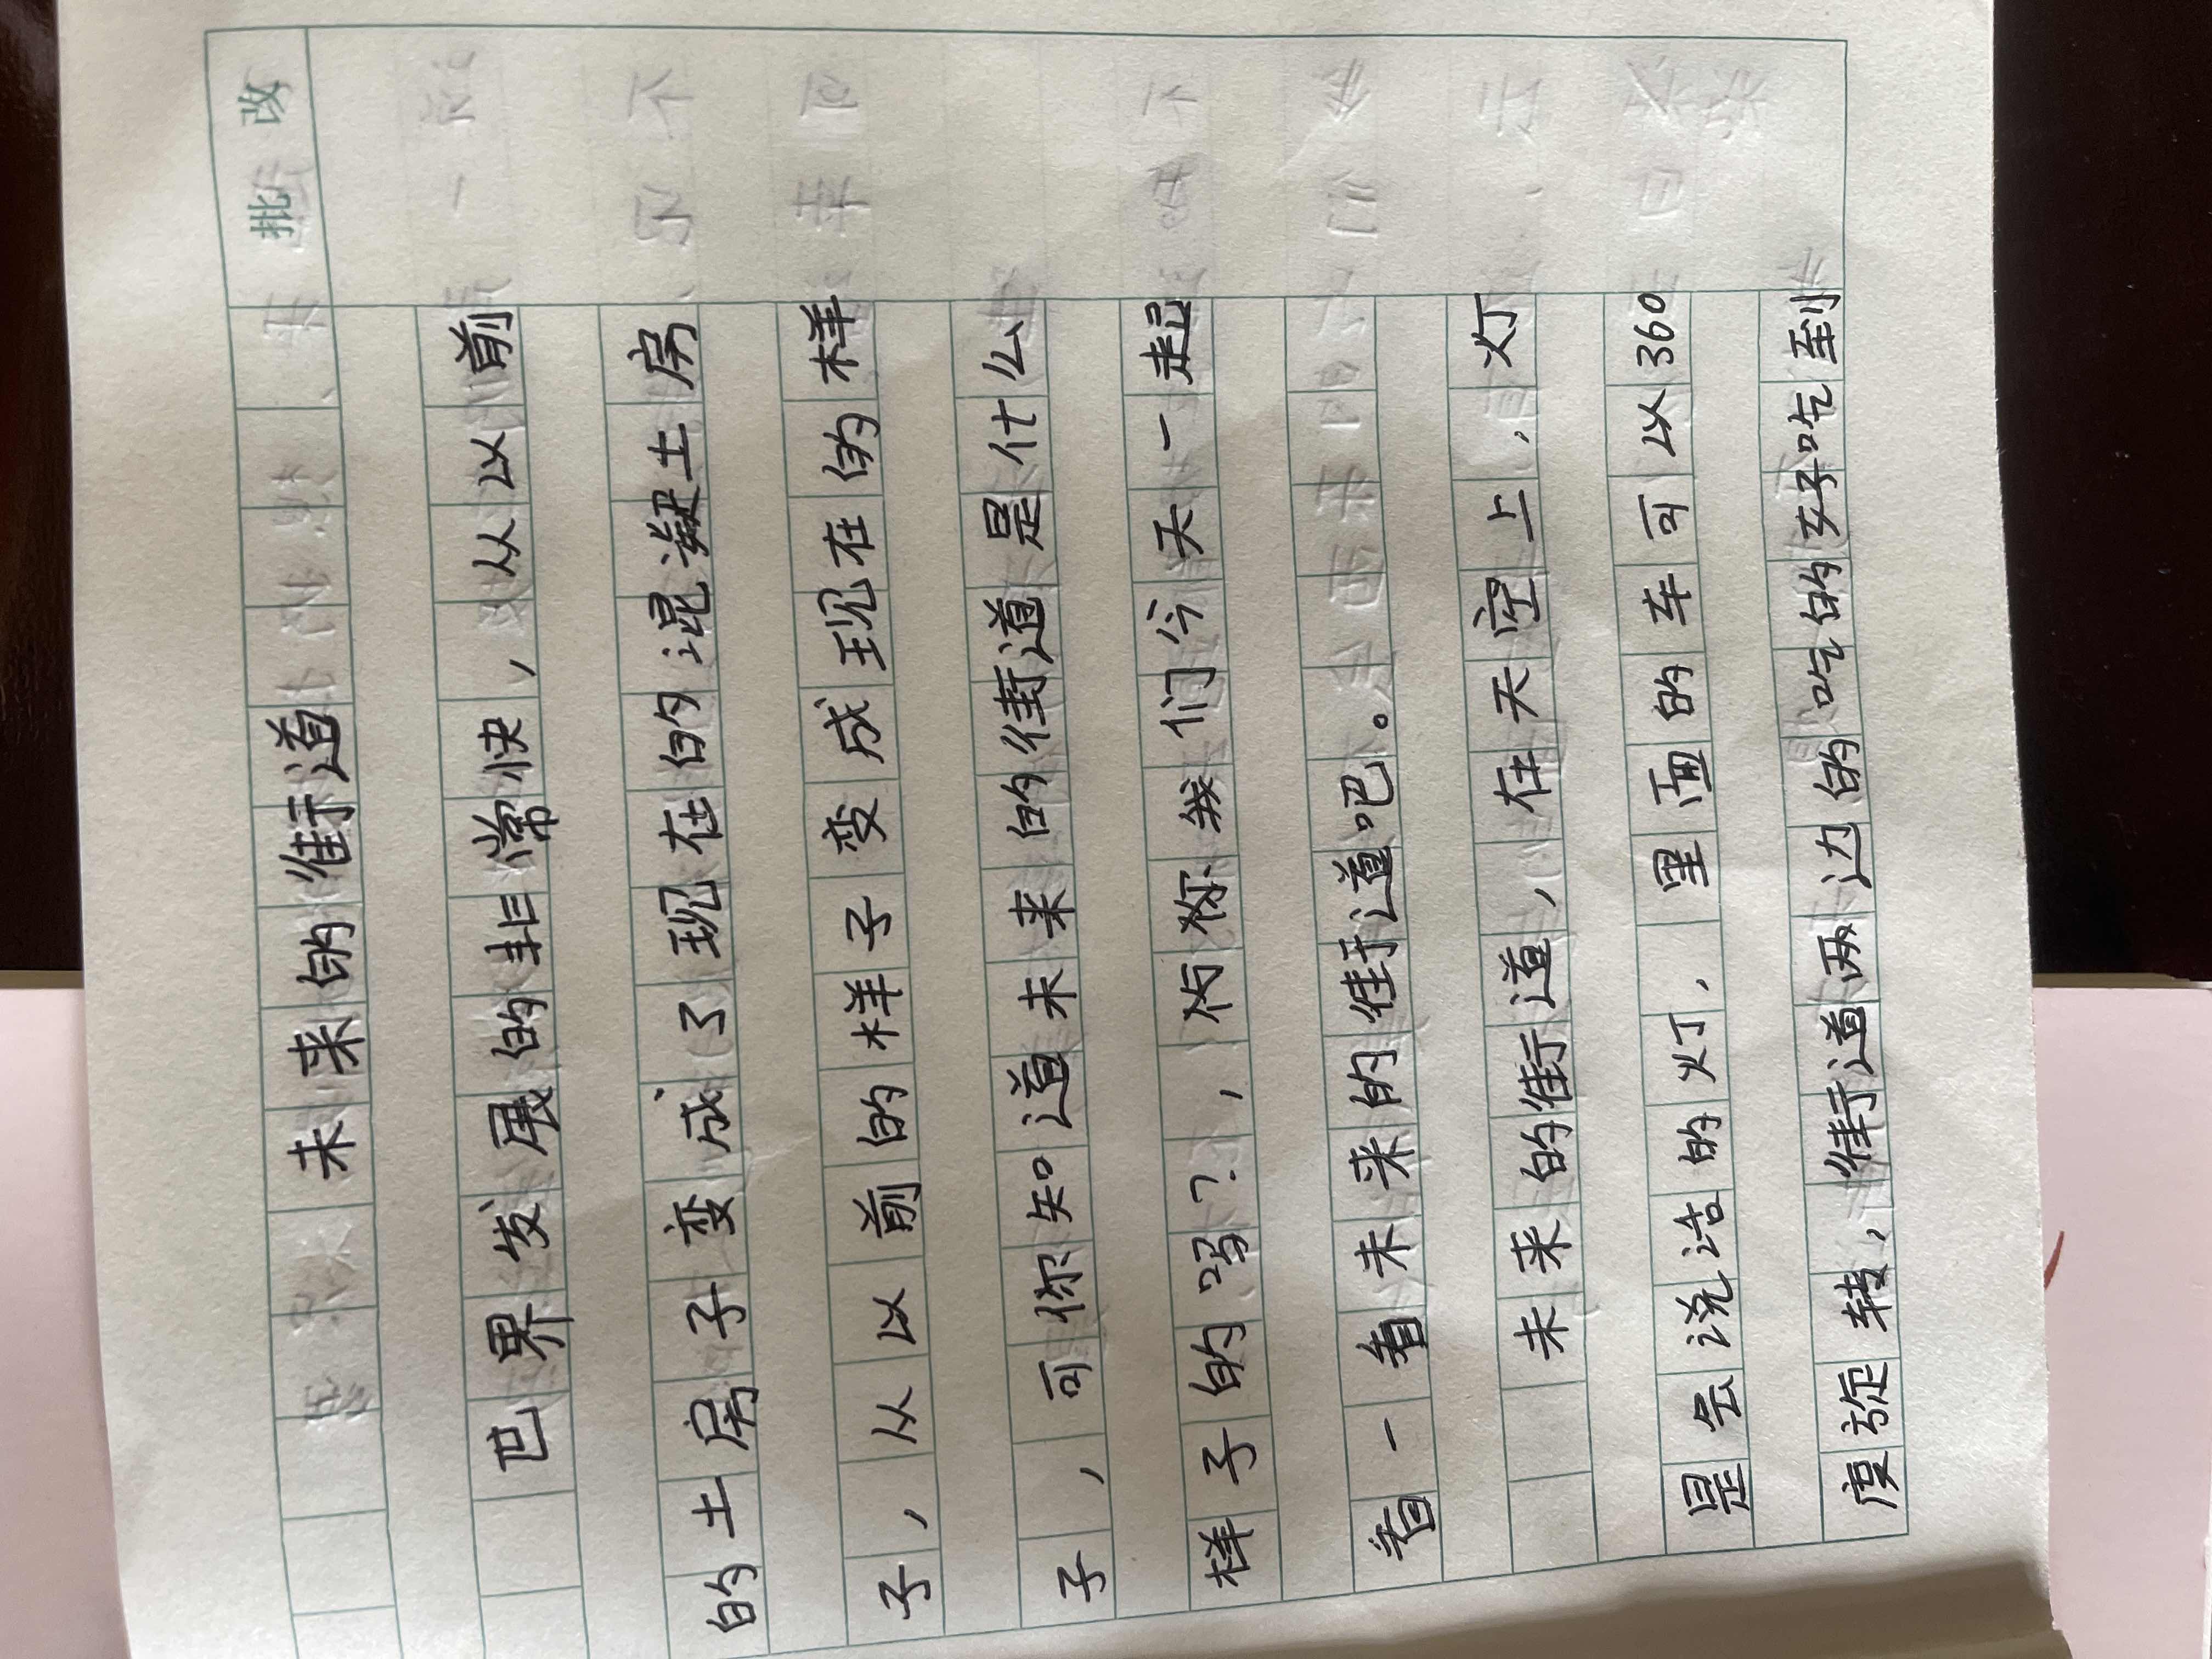 批改
未来的街道
世界发展的非常快，从以前
的土房子变成了现在的混凝土房
子，从以前的样子变成现在的样
子，可你知道未来的街道是什么
样子的吗？，你我们今天一起
看一看未来的街道吧。
未来的街道，在天空上，灯
是会说话的灯，里面的车可以360
度旋转，街道两边的吃的好吃到